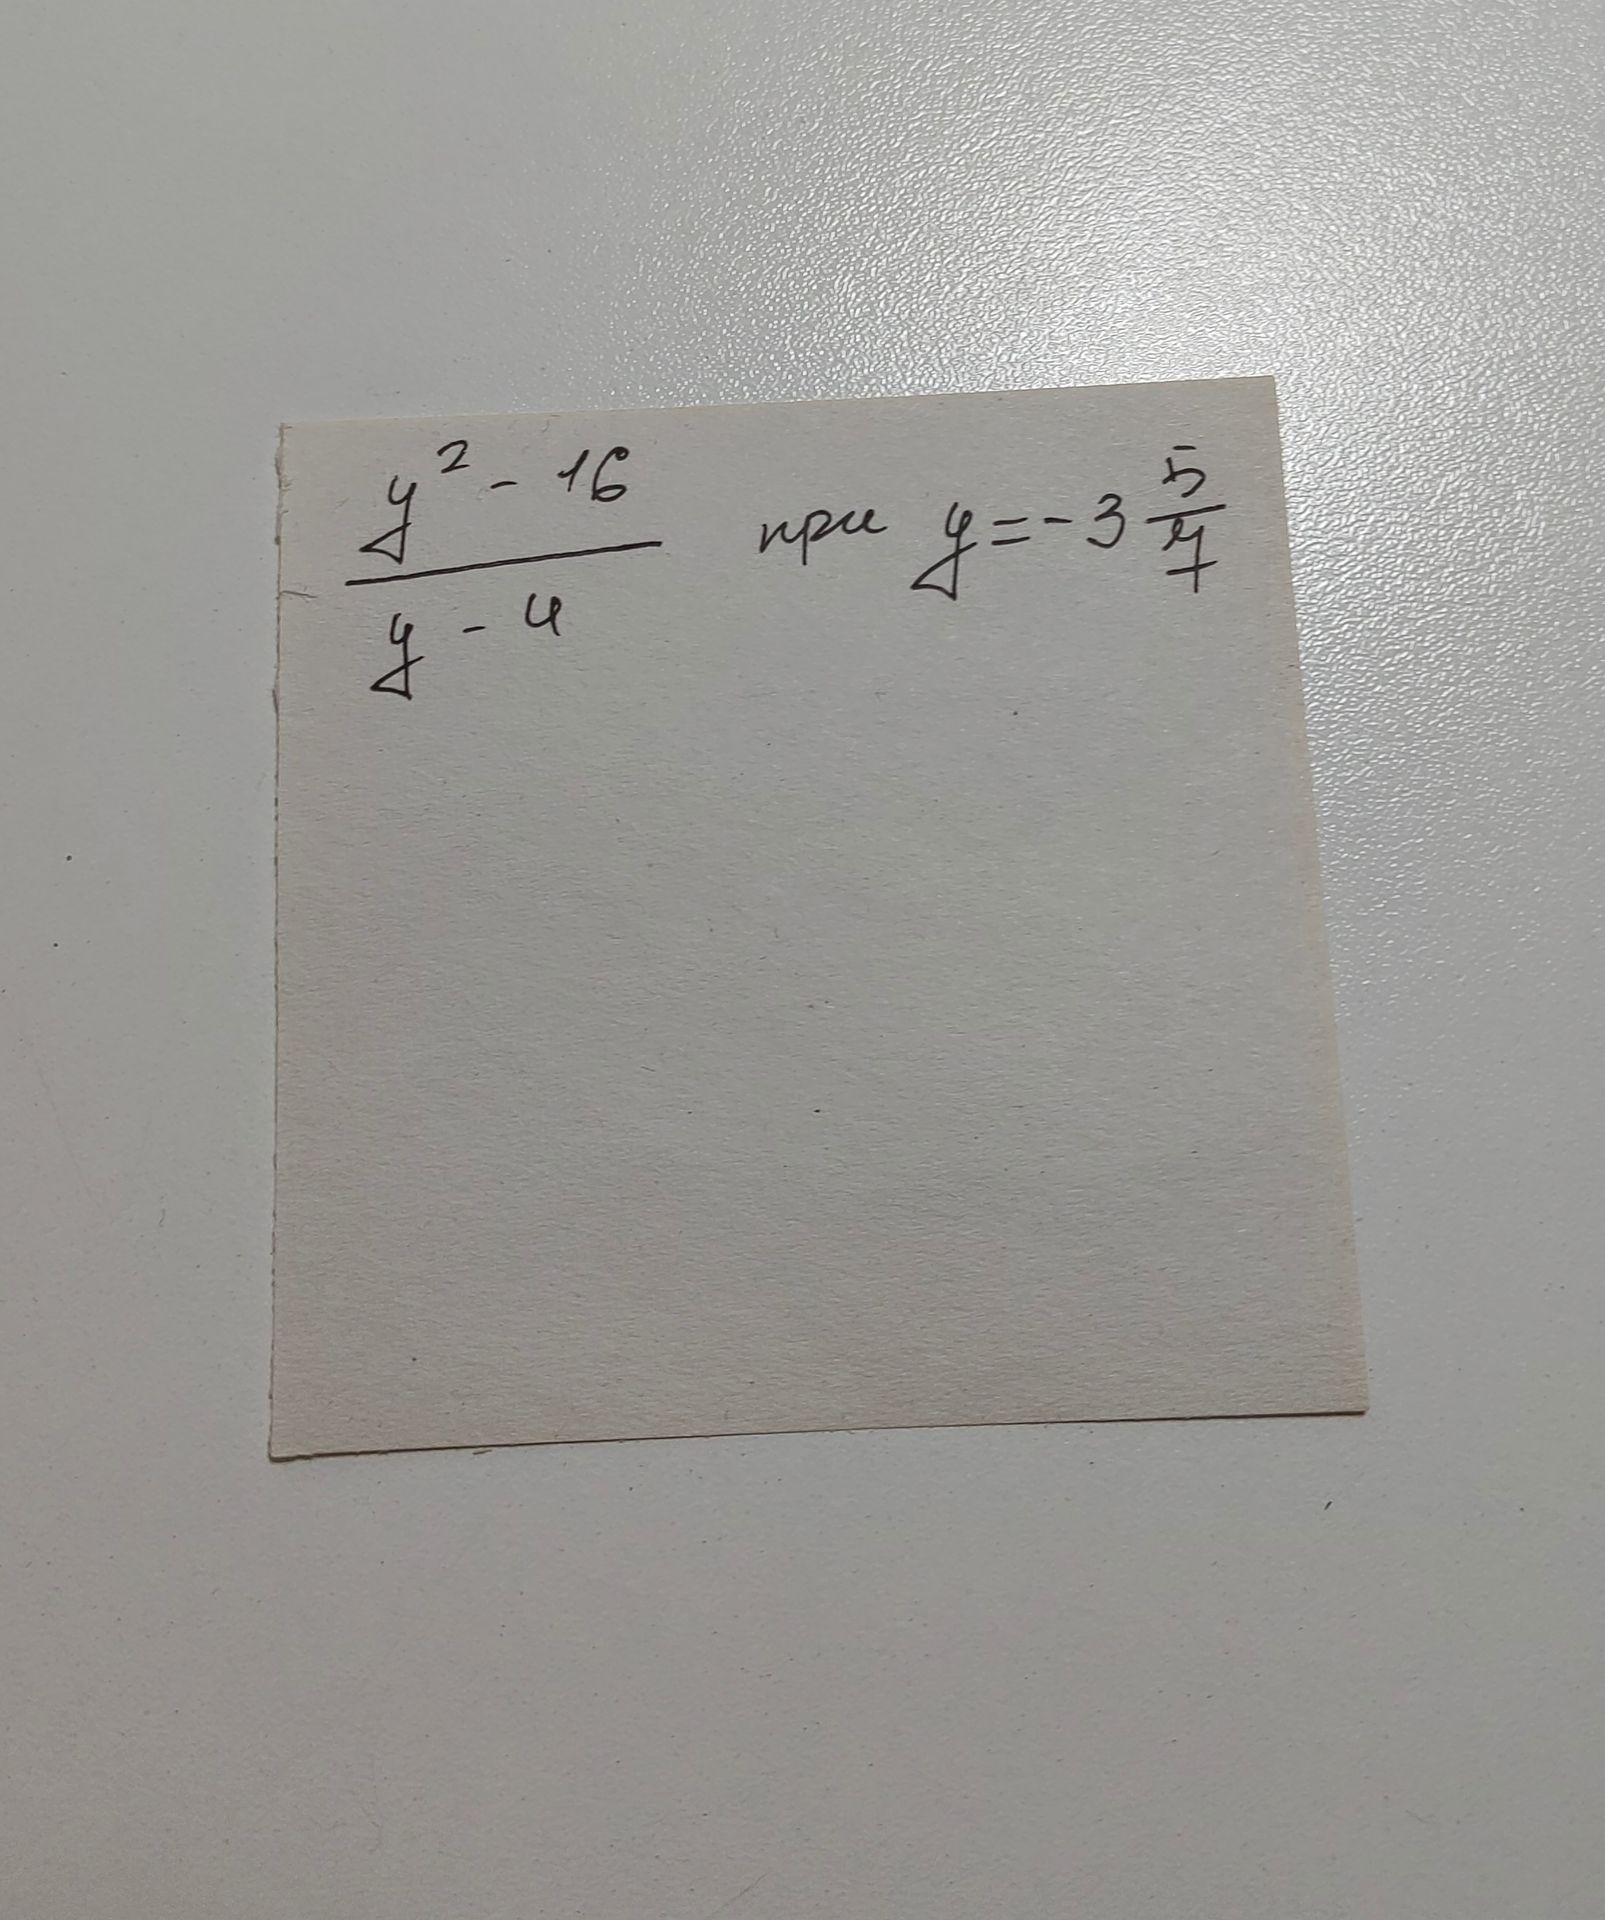 y² - 16 / y - 4 при y = -3 5/7